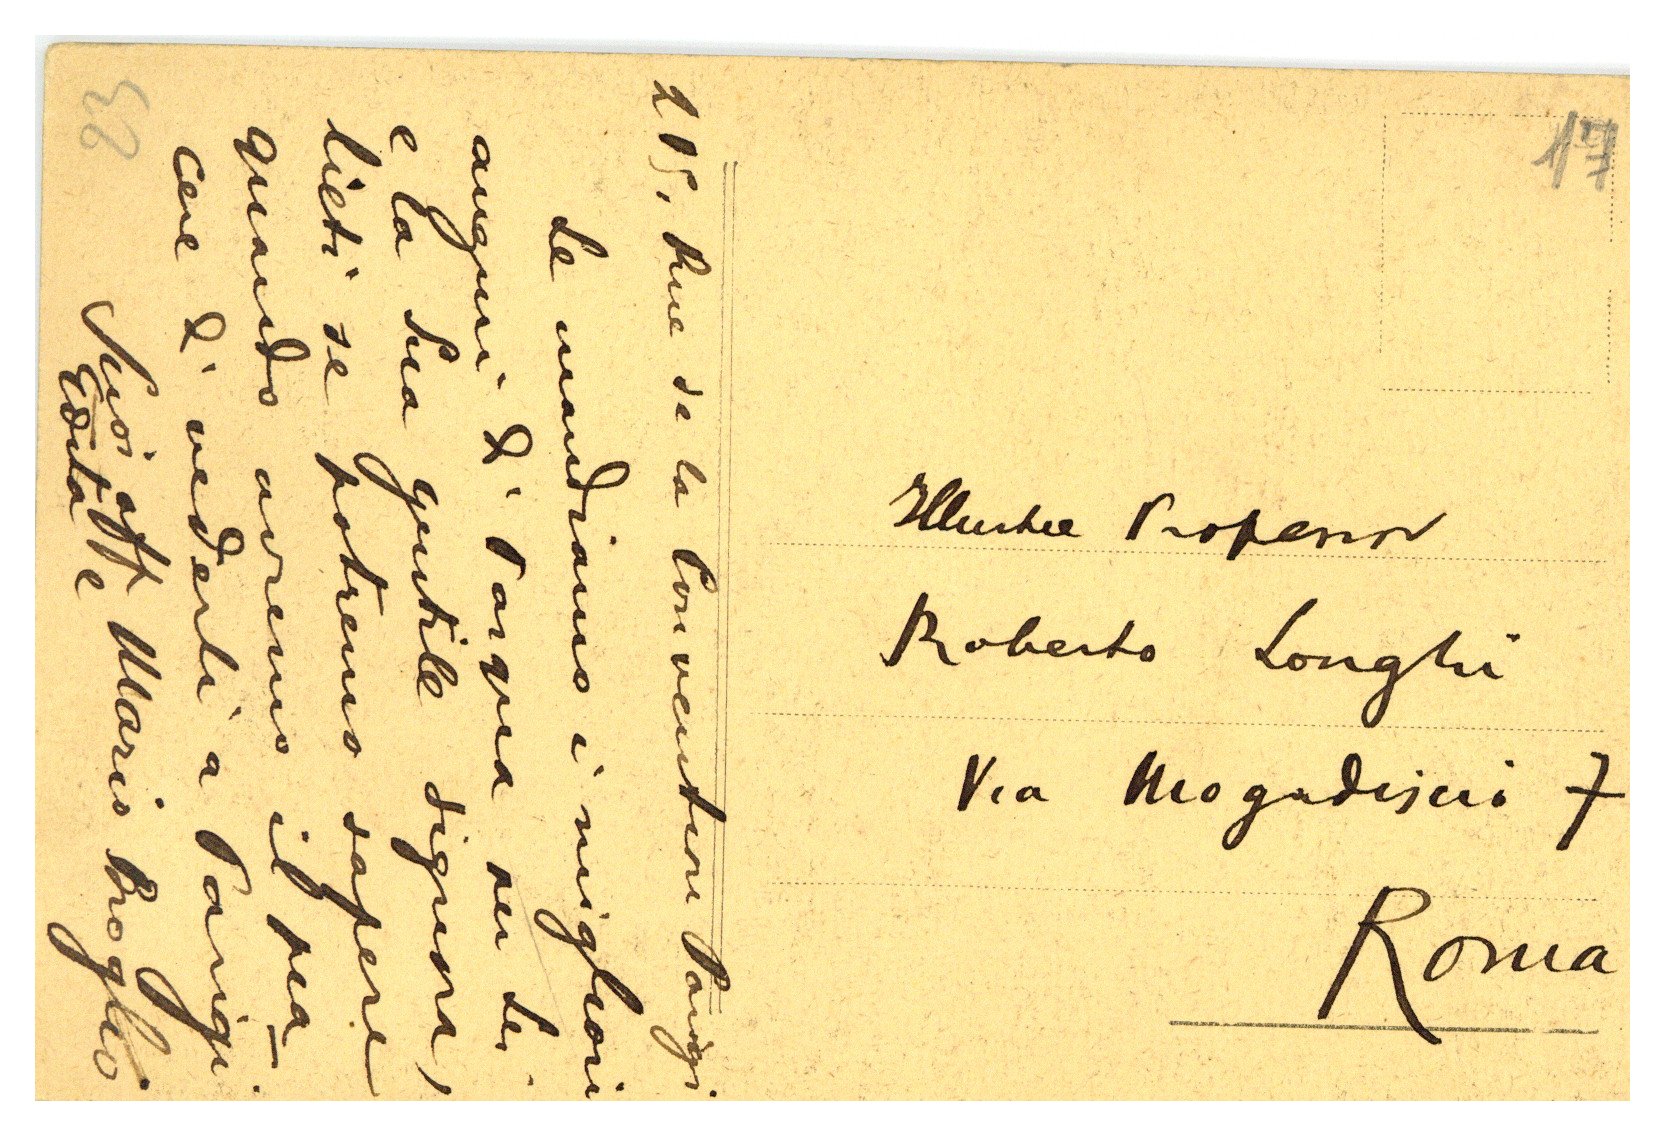 205, Rue de la Convention Parigi.
Le mandiamo i migliori
auguri di Pasqua per Lei
e la Sua gentile signora,
lieti se potremo sapere
quando avremo il pia-
cere di vederli a Parigi.
Suoi aff
Edita e Mario Broglio
32
17
Illustre Professor
Roberto Longhi
Via Mogadiscio 7
Roma